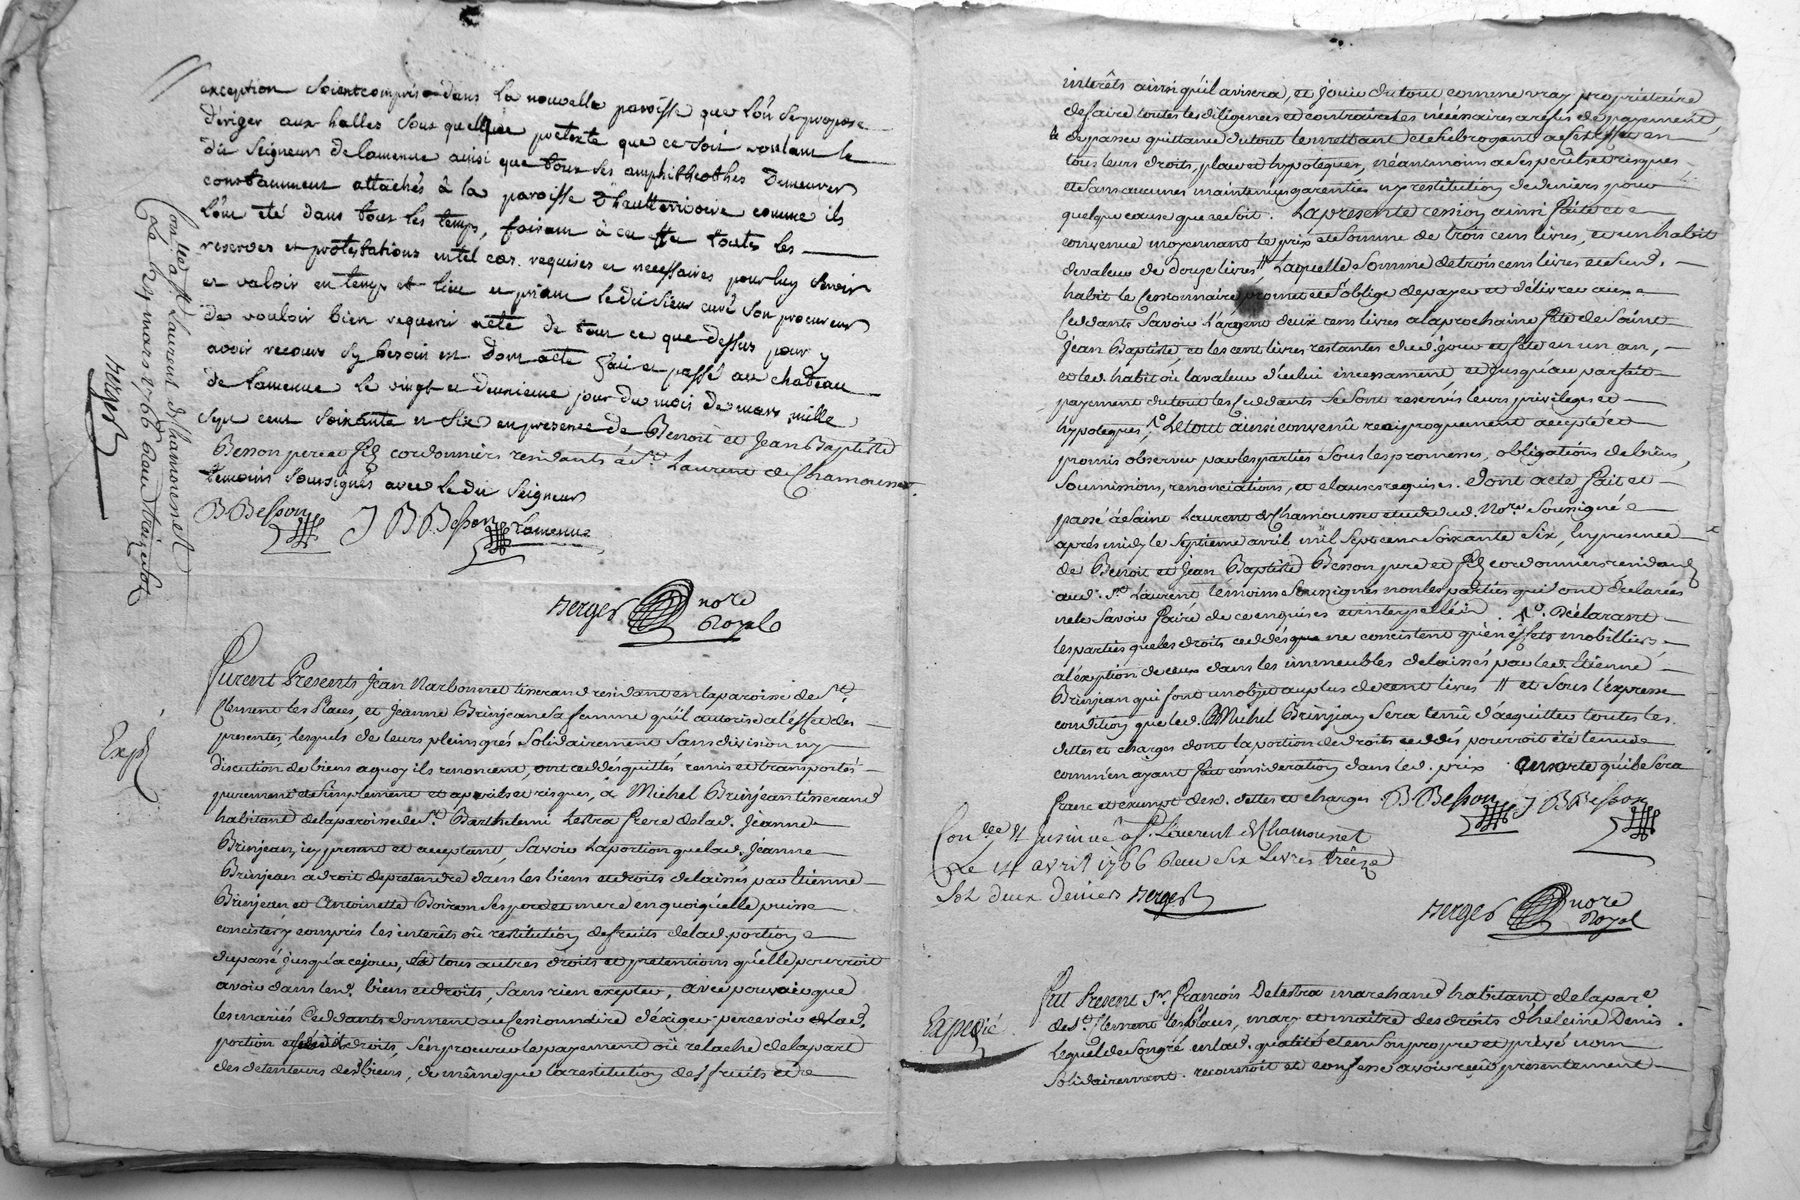 exception soient compris dans la nouvelle paroisse que l'on se propose
d'eriger aux halles sous quelque pretexte que ce soit voulant le
dit seigneur delamenue ainsi que tous ses demeurer
constamment attachés à la paroisse d'hautterivoire comme ils
l'ont été dans tous les temps, faisant à cet effet toutes les
reserves et protestations en tel cas requises et necessaires pour luy servir
et valoir en temps et lieu et priant ledit sieur curé son procureur
de vouloir bien requerir acte de tout ce que dessus pour y
avoir recours sy besoin est dont acte fait et passé au chateau
de lamenue le vingt et deuxieme jour du mois de mars mille
sept cent soixante et six en presence de Benoit et Jean Baptiste
Besson pere et fils cordonniers residants à St. Laurent de Chamousset
temoins soussignés avec ledit seigneur
B Besson J B Besson Lamenue
Berger nore
Royal
Con.llé à st Laurent de Chamousset
mars 1766 Reçu treize sols
Berger
Furent Presents Jean Narbonnet tisserand residant en la paroisse de St.
Clement les Places, et Jeanne Brinjean sa femme qu'il autorise a l'effet des
presentes, lesquels de leurs pleins grés solidairement sans division ny
discution de biens a quoy ils renoncent, ont ceddés quittés remis et transportés
purement et simplement et a perils et risques, à Michel Brinjean tisserand
habitant de la paroisse de St. Barthelemi Lestra frere de lad. Jeanne
Brinjean, icy present et acceptant, savoir la portion que lad. Jeanne
Brinjean a droit de pretendre dans les biens et droits delaissés par Etienne
Brinjean et Antoinette Boiron ses pere et mere en quoi qu'elle puisse
concister y compris les interêts où restitution de fruits de lad. portion
du passé jusqu'a ce jour, tous autres droits et pretentions qu'elle pourroit
avoir dans lesd. biens et droits, sans rien exepter, avec pouvoir que
les mariés ceddants donnent au cessionnaire d'exiger percevoir lad.
portion droits, s'en procurer le payement où relache de la part
des detenteurs des biens, de même que la restitution des fruits et
Exp.é
interêts ainsi qu'il avisera, et jouir du tout comme vray proprietaire
de faire toutes les diligences et contraintes nécessaires a refus de payement,
& de passer quittance du tout le mettant et subrogeant a cet effet en
tous leurs droits, place et hypoteques, néantmoins a ses perils et risques
et sans aucunes maintenue garentie ny restitution de deniers pour
quelque cause que ce soit. La presente cession ainsi faite et
convenue moyennant le prix et somme de trois cens livres, et un habit
de valeur de douze livres laquelle somme de trois cens livres et sud.
habit le cessionnaire promet et s'oblige de payer et delivrer aux
ceddants savoir l'argent deux cens livres a la prochaine fête de saint
Jean Baptiste et les cent livres restantes aud. jour et fête en un an,
et led. habit où la valeur d'icelui incessament et jusqu'au parfait
payement du tout les ceddants se sont reservés leurs privileges et
hypoteques, Le tout ainsi convenû reciproquement accepté et
promis observer par les parties sous les promesses, obligations de biens,
soumissions, renonciations, et clauses requises. Dont acte fait et
passé à Saint Laurent de Chamousset etude dud. Nore. soussigné
aprés midy le septieme avril mil sept cens soixante six, en presence
de Benoit et Jean Baptiste Besson pere et fils cordonniers residants
aud. St. Laurent témoins soussignés non les parties qui ont declarées
ne le savoir faire de ce enquises et interpellées. Declarant
les parties que les droits ceddés ne concistent qu'en effets mobilliers
a l'exeption de ceux dans les immeubles delaissés par led. Etienne
Brinjean qui font un objet au plus de cent livres et sous l'expresse
condition que led. Michel Brinjean sera tenû d'acquitter toutes les
dettes et charges dont la portion de droits ceddés pourroit être tenue
comm'en ayant fait consideration dans led. prix ensorte qu'il sera
franc et exempt desd. dettes et charges B Besson J B Besson
Con.llé et Insinué à st. Laurent de Chamousset
Le 14 avril 1766 Reçu six Livres treize
sols deux Deniers Berger
Berger nore
Royal
Expedié
Fut Present Sr. François Delestra marchand habitant de la par.e
de St. Clement les Places, mary et maitre des droits d'heleine Denis
lequel de son gré en lad. qualité et en son propre et privé nom
solidairement reconnoit et confesse avoir reçû presentement